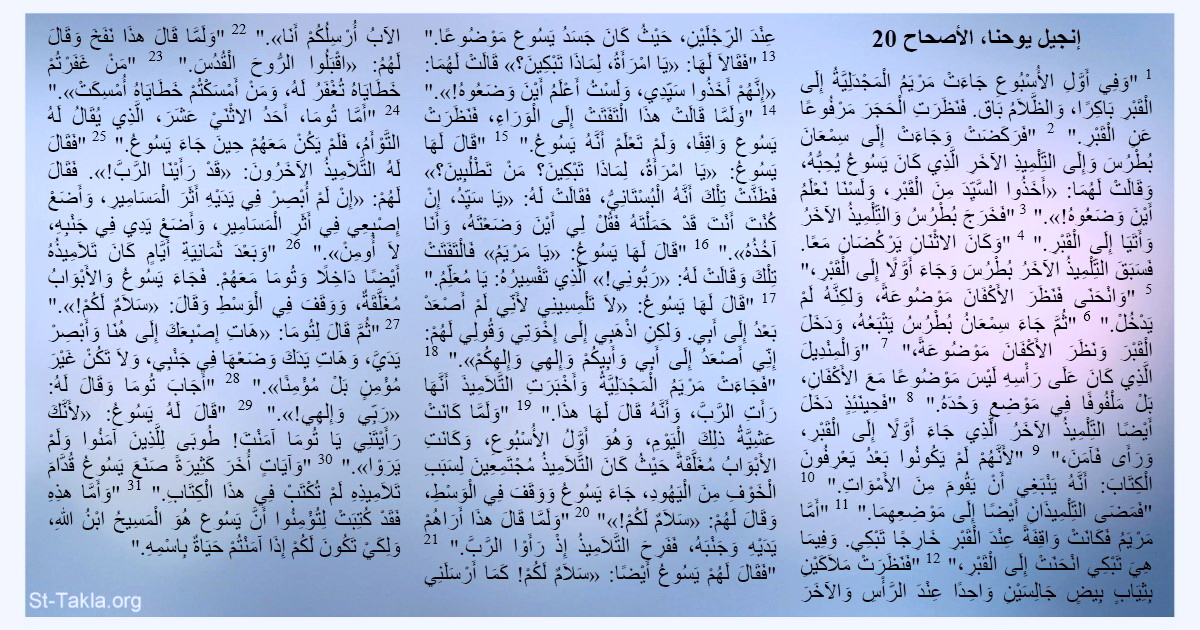 إنجيل يوحنا، الأصحاح 20
1 "وَفِي أَوَّلِ الأُسْبُوعِ جَاءَتْ مَرْيَمُ الْمَجْدَلِيَّةُ إِلَى
الْقَبْرِ بَاكِرًا، وَالظَّلاَمُ بَاق. فَنَظَرَتِ الْحَجَرَ مَرْفُوعًا
عَنِ الْقَبْرِ." 2 "فَرَكَضَتْ وَجَاءَتْ إِلَى سِمْعَانَ
بُطْرُسَ وَإِلَى التِّلْمِيذِ الآخَرِ الَّذِي كَانَ يَسُوعُ يُحِبُّهُ،
وَقَالَتْ لَهُمَا: «أَخَذُوا السَّيِّدَ مِنَ الْقَبْرِ، وَلَسْنَا نَعْلَمُ
أَيْنَ وَضَعُوهُ!»." 3 "فَخَرَجَ بُطْرُسُ وَالتِّلْمِيذُ الآخَرُ
وَأَتَيَا إِلَى الْقَبْرِ." 4 "وَكَانَ الاثْنَانِ يَرْكُضَانِ مَعًا.
فَسَبَقَ التِّلْمِيذُ الآخَرُ بُطْرُسَ وَجَاءَ أَوَّلًا إِلَى الْقَبْرِ،"
5 "وَانْحَنَى فَنَظَرَ الأَكْفَانَ مَوْضُوعَةً، وَلكِنَّهُ لَمْ
يَدْخُلْ." 6 "ثُمَّ جَاءَ سِمْعَانُ بُطْرُسُ يَتْبَعُهُ، وَدَخَلَ
الْقَبْرَ وَنَظَرَ الأَكْفَانَ مَوْضُوعَةً،" 7 "وَالْمِنْدِيلَ
الَّذِي كَانَ عَلَى رَأْسِهِ لَيْسَ مَوْضُوعًا مَعَ الأَكْفَانِ،
بَلْ مَلْفُوفًا فِي مَوْضِعٍ وَحْدَهُ." 8 "فَحِينَئِذٍ دَخَلَ
أَيْضًا التِّلْمِيذُ الآخَرُ الَّذِي جَاءَ أَوَّلًا إِلَى الْقَبْرِ،
وَرَأَى فَآمَنَ،" 9 "لأَنَّهُمْ لَمْ يَكُونُوا بَعْدُ يَعْرِفُونَ
الْكِتَابَ: أَنَّهُ يَنْبَغِي أَنْ يَقُومَ مِنَ الأَمْوَاتِ." 10
"فَمَضَى التِّلْمِيذَانِ أَيْضًا إِلَى مَوْضِعِهِمَا." 11 "أَمَّا
مَرْيَمُ فَكَانَتْ وَاقِفَةً عِنْدَ الْقَبْرِ خَارِجًا تَبْكِي. وَفِيمَا
هِيَ تَبْكِي انْحَنَتْ إِلَى الْقَبْرِ،" 12 "فَنَظَرَتْ مَلاَكَيْنِ
بِثِيَابٍ بِيضٍ جَالِسَيْنِ وَاحِدًا عِنْدَ الرَّأْسِ وَالآخَرَ
عِنْدَ الرِّجْلَيْنِ، حَيْثُ كَانَ جَسَدُ يَسُوعَ مَوْضُوعًا."
13 "فَقَالاَ لَهَا: «يَا امْرَأَةُ، لِمَاذَا تَبْكِينَ؟» قَالَتْ لَهُمَا:
«إِنَّهُمْ أَخَذُوا سَيِّدِي، وَلَسْتُ أَعْلَمُ أَيْنَ وَضَعُوهُ!»."
14 "وَلَمَّا قَالَتْ هذَا الْتَفَتَتْ إِلَى الْوَرَاءِ، فَنَظَرَتْ
يَسُوعَ وَاقِفًا، وَلَمْ تَعْلَمْ أَنَّهُ يَسُوعُ." 15 "قَالَ لَهَا
يَسُوعُ: «يَا امْرَأَةُ، لِمَاذَا تَبْكِينَ؟ مَنْ تَطْلُبِينَ؟»
فَظَنَّتْ تِلْكَ أَنَّهُ الْبُسْتَانِيُّ، فَقَالَتْ لَهُ: «يَا سَيِّدُ، إِنْ
كُنْتَ أَنْتَ قَدْ حَمَلْتَهُ فَقُلْ لِي أَيْنَ وَضَعْتَهُ، وَأَنَا
آخُذُهُ»." 16 "قَالَ لَهَا يَسُوعُ: «يَا مَرْيَمُ» فَالْتَفَتَتْ
تِلْكَ وَقَالَتْ لَهُ: «رَبُّونِي!» الَّذِي تَفْسِيرُهُ: يَا مُعَلِّمُ."
17 "قَالَ لَهَا يَسُوعُ: «لاَ تَلْمِسِينِي لأَنِّي لَمْ أَصْعَدْ
بَعْدُ إِلَى أَبِي. وَلكِنِ اذْهَبِي إِلَى إِخْوَتِي وَقُولِي لَهُمْ:
إِنِّي أَصْعَدُ إِلَى أَبِي وَأَبِيكُمْ وَإِلهِي وَإِلهِكُمْ»." 18
"فَجَاءَتْ مَرْيَمُ الْمَجْدَلِيَّةُ وَأَخْبَرَتِ التَّلاَمِيذَ أَنَّهَا
رَأَتِ الرَّبَّ، وَأَنَّهُ قَالَ لَهَا هذَا." 19 "وَلَمَّا كَانَتْ
عَشِيَّةُ ذلِكَ الْيَوْمِ، وَهُوَ أَوَّلُ الأُسْبُوعِ، وَكَانَتِ
الأَبْوَابُ مُغَلَّقَةً حَيْثُ كَانَ التَّلاَمِيذُ مُجْتَمِعِينَ لِسَبَبِ
الْخَوْفِ مِنَ الْيَهُودِ، جَاءَ يَسُوعُ وَوَقَفَ فِي الْوَسْطِ،
وَقَالَ لَهُمْ: «سَلاَمٌ لَكُمْ!»" 20 "وَلَمَّا قَالَ هذَا أَرَاهُمْ
يَدَيْهِ وَجَنْبَهُ، فَفَرِحَ التَّلاَمِيذُ إِذْ رَأَوْا الرَّبَّ." 21
"فَقَالَ لَهُمْ يَسُوعُ أَيْضًا: «سَلاَمٌ لَكُمْ! كَمَا أَرْسَلَنِي
الآبُ أُرْسِلُكُمْ أَنَا»." 22 "وَلَمَّا قَالَ هذَا نَفَخَ وَقَالَ
لَهُمُ: «اقْبَلُوا الرُّوحَ الْقُدُسَ." 23 "مَنْ غَفَرْتُمْ
خَطَايَاهُ تُغْفَرُ لَهُ، وَمَنْ أَمْسَكْتُمْ خَطَايَاهُ أُمْسِكَتْ»."
24 "أَمَّا تُومَا، أَحَدُ الاثْنَيْ عَشَرَ، الَّذِي يُقَالُ لَهُ
التَّوْأَمُ، فَلَمْ يَكُنْ مَعَهُمْ حِينَ جَاءَ يَسُوعُ." 25 "فَقَالَ
لَهُ التَّلاَمِيذُ الآخَرُونَ: «قَدْ رَأَيْنَا الرَّبَّ!». فَقَالَ
لَهُمْ: «إِنْ لَمْ أُبْصِرْ فِي يَدَيْهِ أَثَرَ الْمَسَامِيرِ، وَأَضَعْ
إِصْبِعِي فِي أَثَرِ الْمَسَامِيرِ، وَأَضَعْ يَدِي فِي جَنْبِهِ،
لاَ أُومِنْ»." 26 "وَبَعْدَ ثَمَانِيَةِ أَيَّامٍ كَانَ تَلاَمِيذُهُ
أَيْضًا دَاخِلًا وَتُومَا مَعَهُمْ. فَجَاءَ يَسُوعُ وَالأَبْوَابُ
مُغَلَّقَةٌ، وَوَقَفَ فِي الْوَسْطِ وَقَالَ: «سَلاَمٌ لَكُمْ!»."
27 "ثُمَّ قَالَ لِتُومَا: «هَاتِ إِصْبِعَكَ إِلَى هُنَا وَأَبْصِرْ
يَدَيَّ، وَهَاتِ يَدَكَ وَضَعْهَا فِي جَنْبِي، وَلاَ تَكُنْ غَيْرَ
مُؤْمِنٍ بَلْ مُؤْمِنًا»." 28 "أَجَابَ تُومَا وَقَالَ لَهُ:
«رَبِّي وَإِلهِي!»." 29 "قَالَ لَهُ يَسُوعُ: «لأَنَّكَ
رَأَيْتَنِي يَا تُومَا آمَنْتَ! طُوبَى لِلَّذِينَ آمَنُوا وَلَمْ
يَرَوْا»." 30 "وَآيَاتٍ أُخَرَ كَثِيرَةً صَنَعَ يَسُوعُ قُدَّامَ
تَلاَمِيذِهِ لَمْ تُكْتَبْ فِي هذَا الْكِتَابِ." 31 "وَأَمَّا هذِهِ
فَقَدْ كُتِبَتْ لِتُؤْمِنُوا أَنَّ يَسُوعَ هُوَ الْمَسِيحُ ابْنُ اللهِ،
وَلِكَيْ تَكُونَ لَكُمْ إِذَا آمَنْتُمْ حَيَاةٌ بِاسْمِهِ."
St-Takla.org